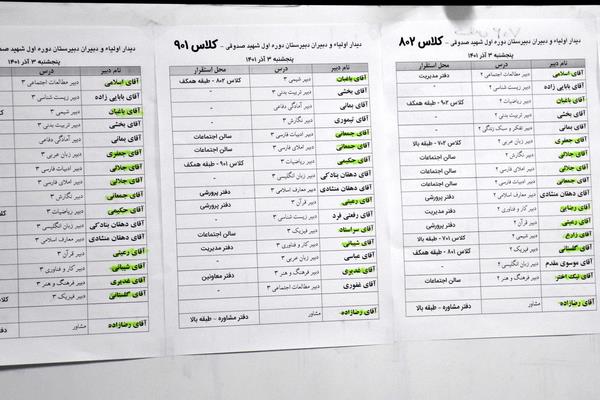 دیدار اولیاء و دبیران دبیرستان دوره اول شهید صدوقی - کلاس ۸۰۲
پنجشنبه ۳ آذر ۱۴۰۱
نام دبیر درس محل استقرار
آقای اسلامی دبیر مطالعات اجتماعی ۲ دفتر مدیریت
آقای بابایی زاده دبیر زیست شناسی ۲ -
آقای باغبان دبیر ریاضیات ۲ کلاس ۹۰۲ - طبقه همکف
آقای بخشی دبیر تربیت بدنی ۲ -
آقای یمانی دبیر تفکر و سبک زندگی ۲ -
آقای جعفری دبیر زبان عربی ۲ کلاس ۷۰۲ - طبقه بالا
آقای جلالی دبیر نگارش ۲ سالن اجتماعات
آقای جلالی دبیر املای فارسی ۲ سالن اجتماعات
آقای جمعانی دبیر ادبیات فارسی ۲ سالن اجتماعات
آقای دهقان منشادی دبیر معارف اسلامی ۲ دفتر پرورشی
آقای رضایی دبیر کار و فناوری ۲ دفتر مدیریت
آقای رعیتی دبیر قرآن ۲ دفتر پرورشی
آقای زارع دبیر شیمی ۲ کلاس ۷۰۱ - طبقه بالا
آقای گلستانی دبیر فیزیک ۲ کلاس ۸۰۱ - طبقه همکف
آقای موسوی مقدم دبیر زبان انگلیسی ۲ -
آقای نیک اختر دبیر فرهنگ و هنر ۲ سالن اجتماعات
آقای رضازاده مشاور دفتر مشاوره - طبقه بالا
دیدار اولیاء و دبیران دبیرستان دوره اول شهید صدوقی - کلاس ۹۰۱
پنجشنبه ۳ آذر ۱۴۰۱
نام دبیر درس محل استقرار
آقای باغبان دبیر شیمی ۳ کلاس ۸۰۲ - طبقه همکف
آقای بخشی دبیر تربیت بدنی ۳ -
آقای یمانی دبیر آمادگی دفاعی -
آقای تیموری دبیر نگارش ۳ -
آقای جمعانی دبیر ادبیات فارسی ۳ سالن اجتماعات
آقای جمعانی دبیر املای فارسی ۳ سالن اجتماعات
آقای حکیمی دبیر ریاضیات ۳ کلاس ۹۰۱ - طبقه همکف
آقای دهقان بنادکی دبیر زبان انگلیسی ۳ -
آقای دهقان منشادی دبیر معارف اسلامی ۳ دفتر پرورشی
آقای رعیتی دبیر قرآن ۳ دفتر پرورشی
آقای رفعتی فرد دبیر زیست شناسی ۳ -
آقای سراستاد دبیر فیزیک ۳ سالن اجتماعات
آقای شیبانی دبیر کار و فناوری ۳ دفتر مدیریت
آقای عباسی دبیر زبان عربی ۳ -
آقای غدیری دبیر فرهنگ و هنر ۳ دفتر معاونین
آقای غفوری دبیر مطالعات اجتماعی ۳ -
آقای رضازاده مشاور دفتر مشاوره - طبقه بالا
دیدار اولیاء و دبیران دبیرستان دوره اول شهید صدو
پنجشنبه ۳ آذر ۱۴۰۱
نام دبیر درس
آقای اسلامی دبیر مطالعات اجتماعی ۳
آقای بابایی زاده دبیر زیست شناسی ۳
آقای باغبان دبیر شیمی ۳
آقای بخشی دبیر تربیت بدنی ۳
آقای یمانی دبیر آمادگی دفاعی
آقای جعفری دبیر زبان عربی ۳
آقای جلالی دبیر ادبیات فارسی ۳
آقای جلالی دبیر املای فارسی ۳
آقای جمعانی دبیر نگارش ۳
آقای حکیمی دبیر ریاضیات ۳
آقای دهقان بنادکی دبیر زبان انگلیسی ۳
آقای دهقان منشادی دبیر معارف اسلامی ۳
آقای رعیتی دبیر قرآن ۳
آقای شیبانی دبیر کار و فناوری ۳
آقای غدیری دبیر فرهنگ و هنر ۳
آقای گلستانی دبیر فیزیک ۳
آقای رضازاده مشاور